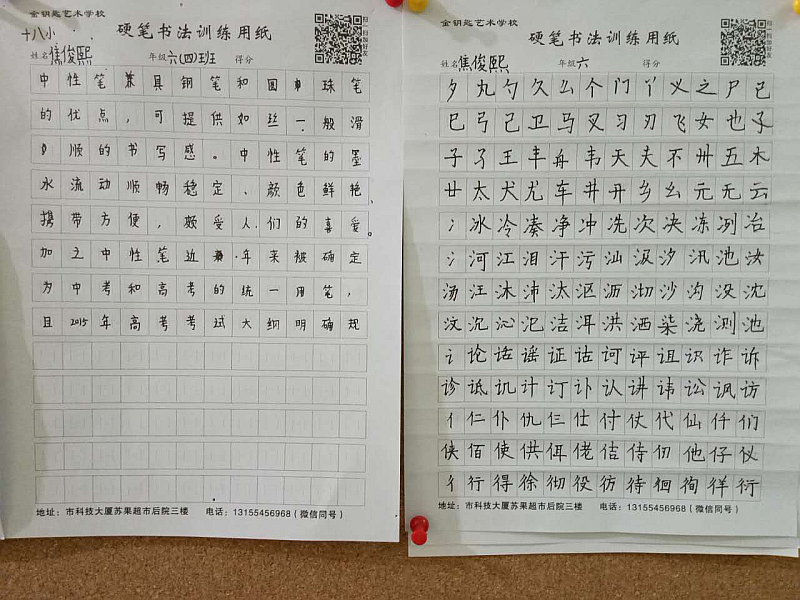 金钥匙艺术学校
十八小
硬笔书法训练用纸
姓名 焦俊熙 年级 六(四)班 得分
中性笔兼具钢笔和圆珠笔
的优点，可提供如丝一般滑
顺的书写感。中性笔的墨
水流动顺畅稳定、颜色鲜艳、
携带方便，颇受人们的喜爱。
加之中性笔近年来被确定
为中考和高考的统一用笔，
且2015年高考考试大纲明确规
地址：市科技大厦苏果超市后院三楼 电话：13155456968（微信同号）
金钥匙艺术学校
硬笔书法训练用纸
姓名 焦俊熙 年级 六 得分
夕丸勺久么个门丫义之尸已
巳弓己卫马叉习刃飞女也孑
子了王丰舟韦天夫不卅五木
廿太犬尤车井开幺元无云
冫冰冷凑净冲冼次决冻冽冶
氵河江泪汗污汕汲汐汛池汝
汤汪沐沛汰沤沥沏沙沟没沈
汶沉沁汜洁洱洪洒柒浇测池
讠论话谣证诂诃评诅识诈诉
诊诋讥计订讣认讲讳讼讽访
亻仁仆仇仨仕付仗代仙仟们
侠佰使供佴佬佶侍仞他仔仪
彳行得徐彻役彷待徊徇徉衍
地址：市科技大厦苏果超市后院三楼 电话：13155456968（微信同号）